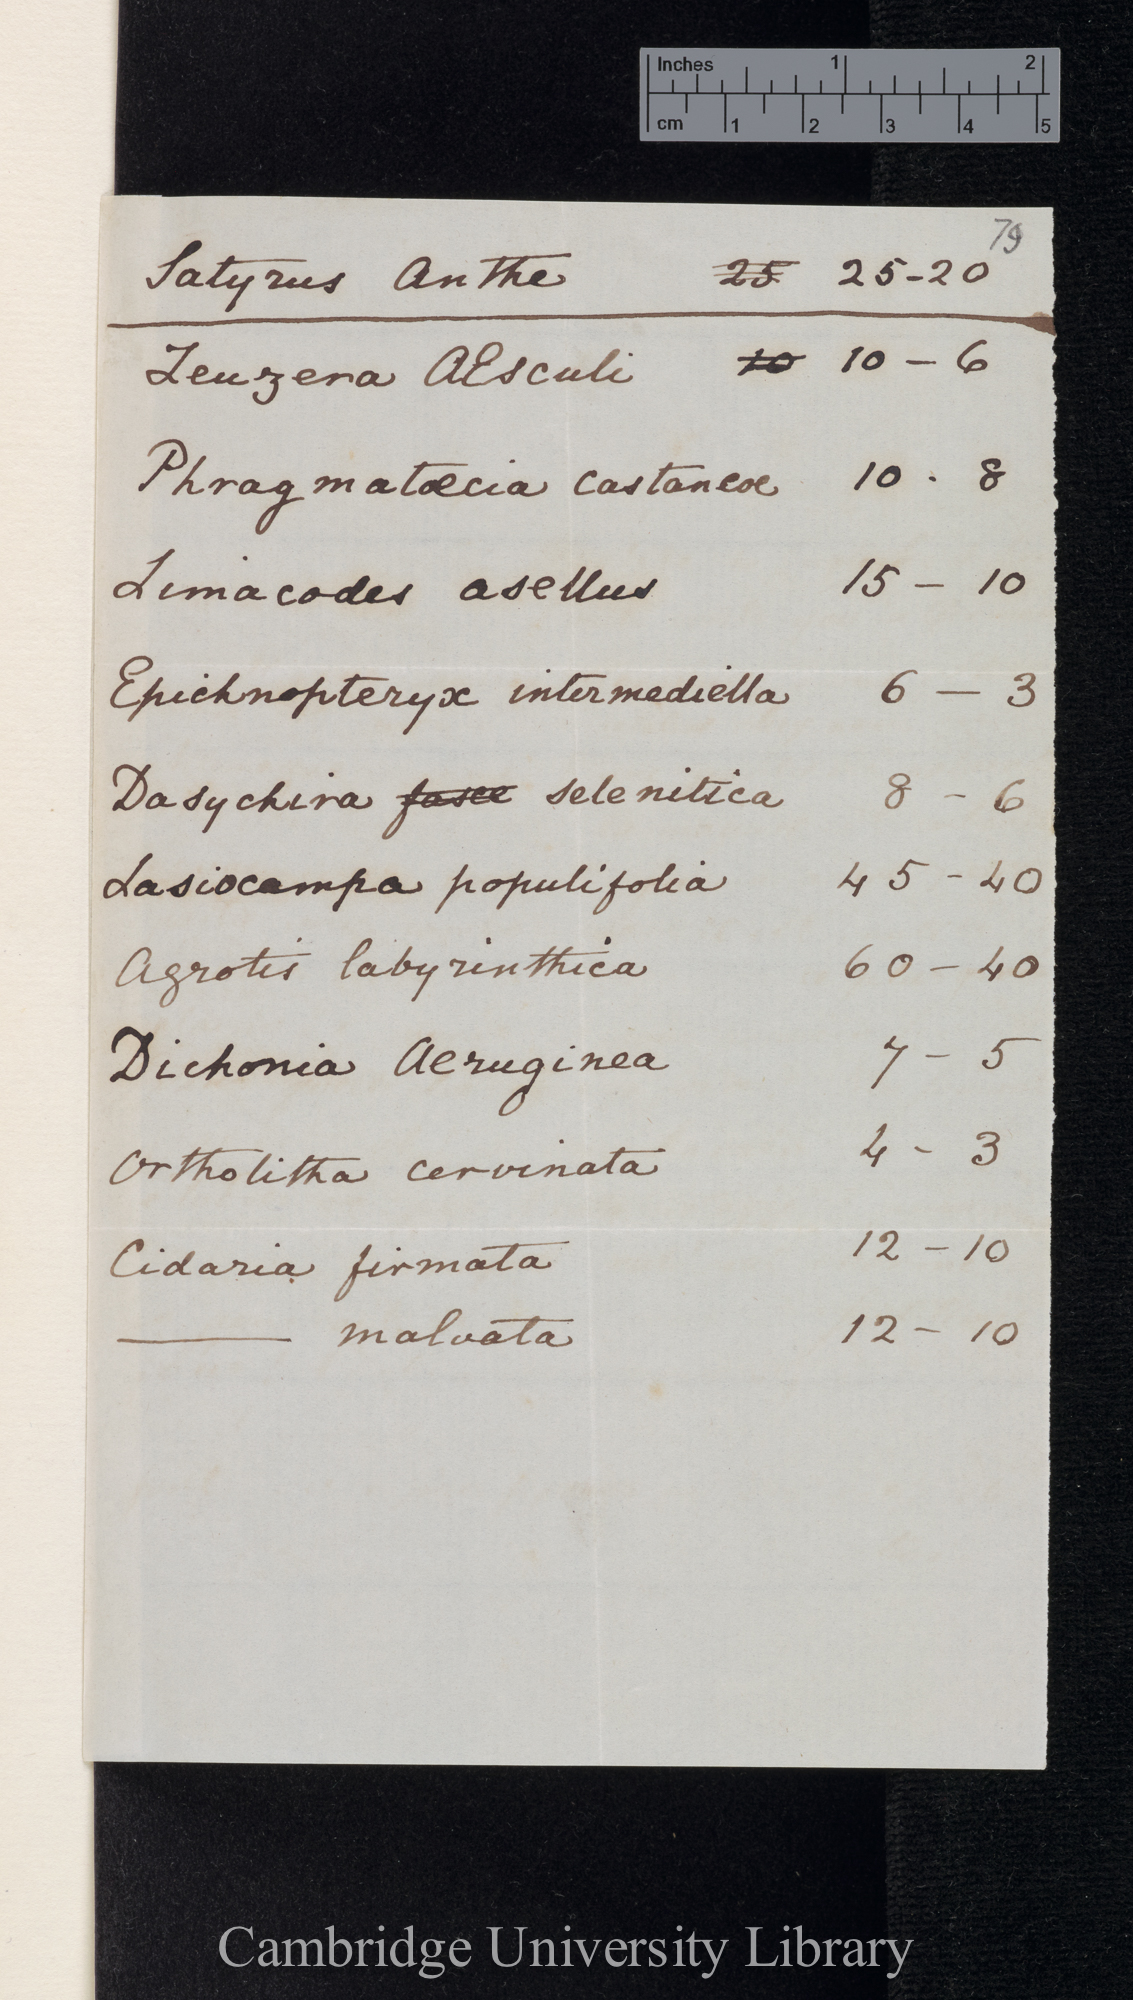 Inches 1 2
cm 1 2 3 4 5
79
Satyrus Anthe 25 25-20
Zeuzera AEsculi 10 10 – 6
Phragmatœcia castaneæ 10 . 8
Limacodes asellus 15 – 10
Epichnopteryx intermediella 6 — 3
Dasychira fasce selenitica 8 – 6
Lasiocampa populifolia 45 - 40
Agrotis labyrinthica 60 – 40
Dichonia Aeruginea 7 – 5
Ortholitha cervinata 4 - 3
Cidaria firmata 12 – 10
——— malvata 12 – 10
Cambridge University Library